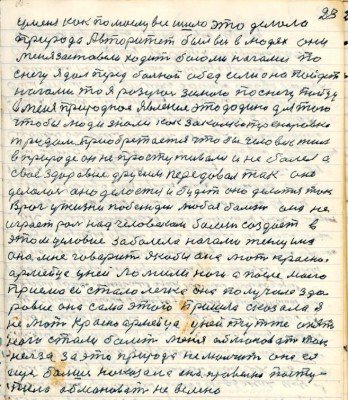 23
у меня как по моему все шло это делала
природа Авторитет был я в людях они
меня заставили ходить босыми ногами по
снегу я дал перед больной обед если она пойдет
ногами то я разуюсь зимою по снегу пойду
в меня природное явление это додано для того
чтобы люди знали как закаливо тренировка
трудом приобретается что бы человек жил
в природе он не простудивал и не болел а
свое здаровие другим передовал так оно
делалос оно делости и будит оно дилатся так
Враг у жизни победим любая болезнь она не
играет рол над человеком болезн создает в
этом условие заболела ногами женщина
она мне гаварит якобы она мот красно-
армейца у ней ломили ноги а после моего
приема ей стало легко она получила здо
ровие она сама этого пришла сказала я
не мот красно армейца у ней тут же опять
ноги стали болит меня обмоновать там
нельзя за это природа не молчит она ее
еще болши наказала она правилно посту-
пила обмановать не велено